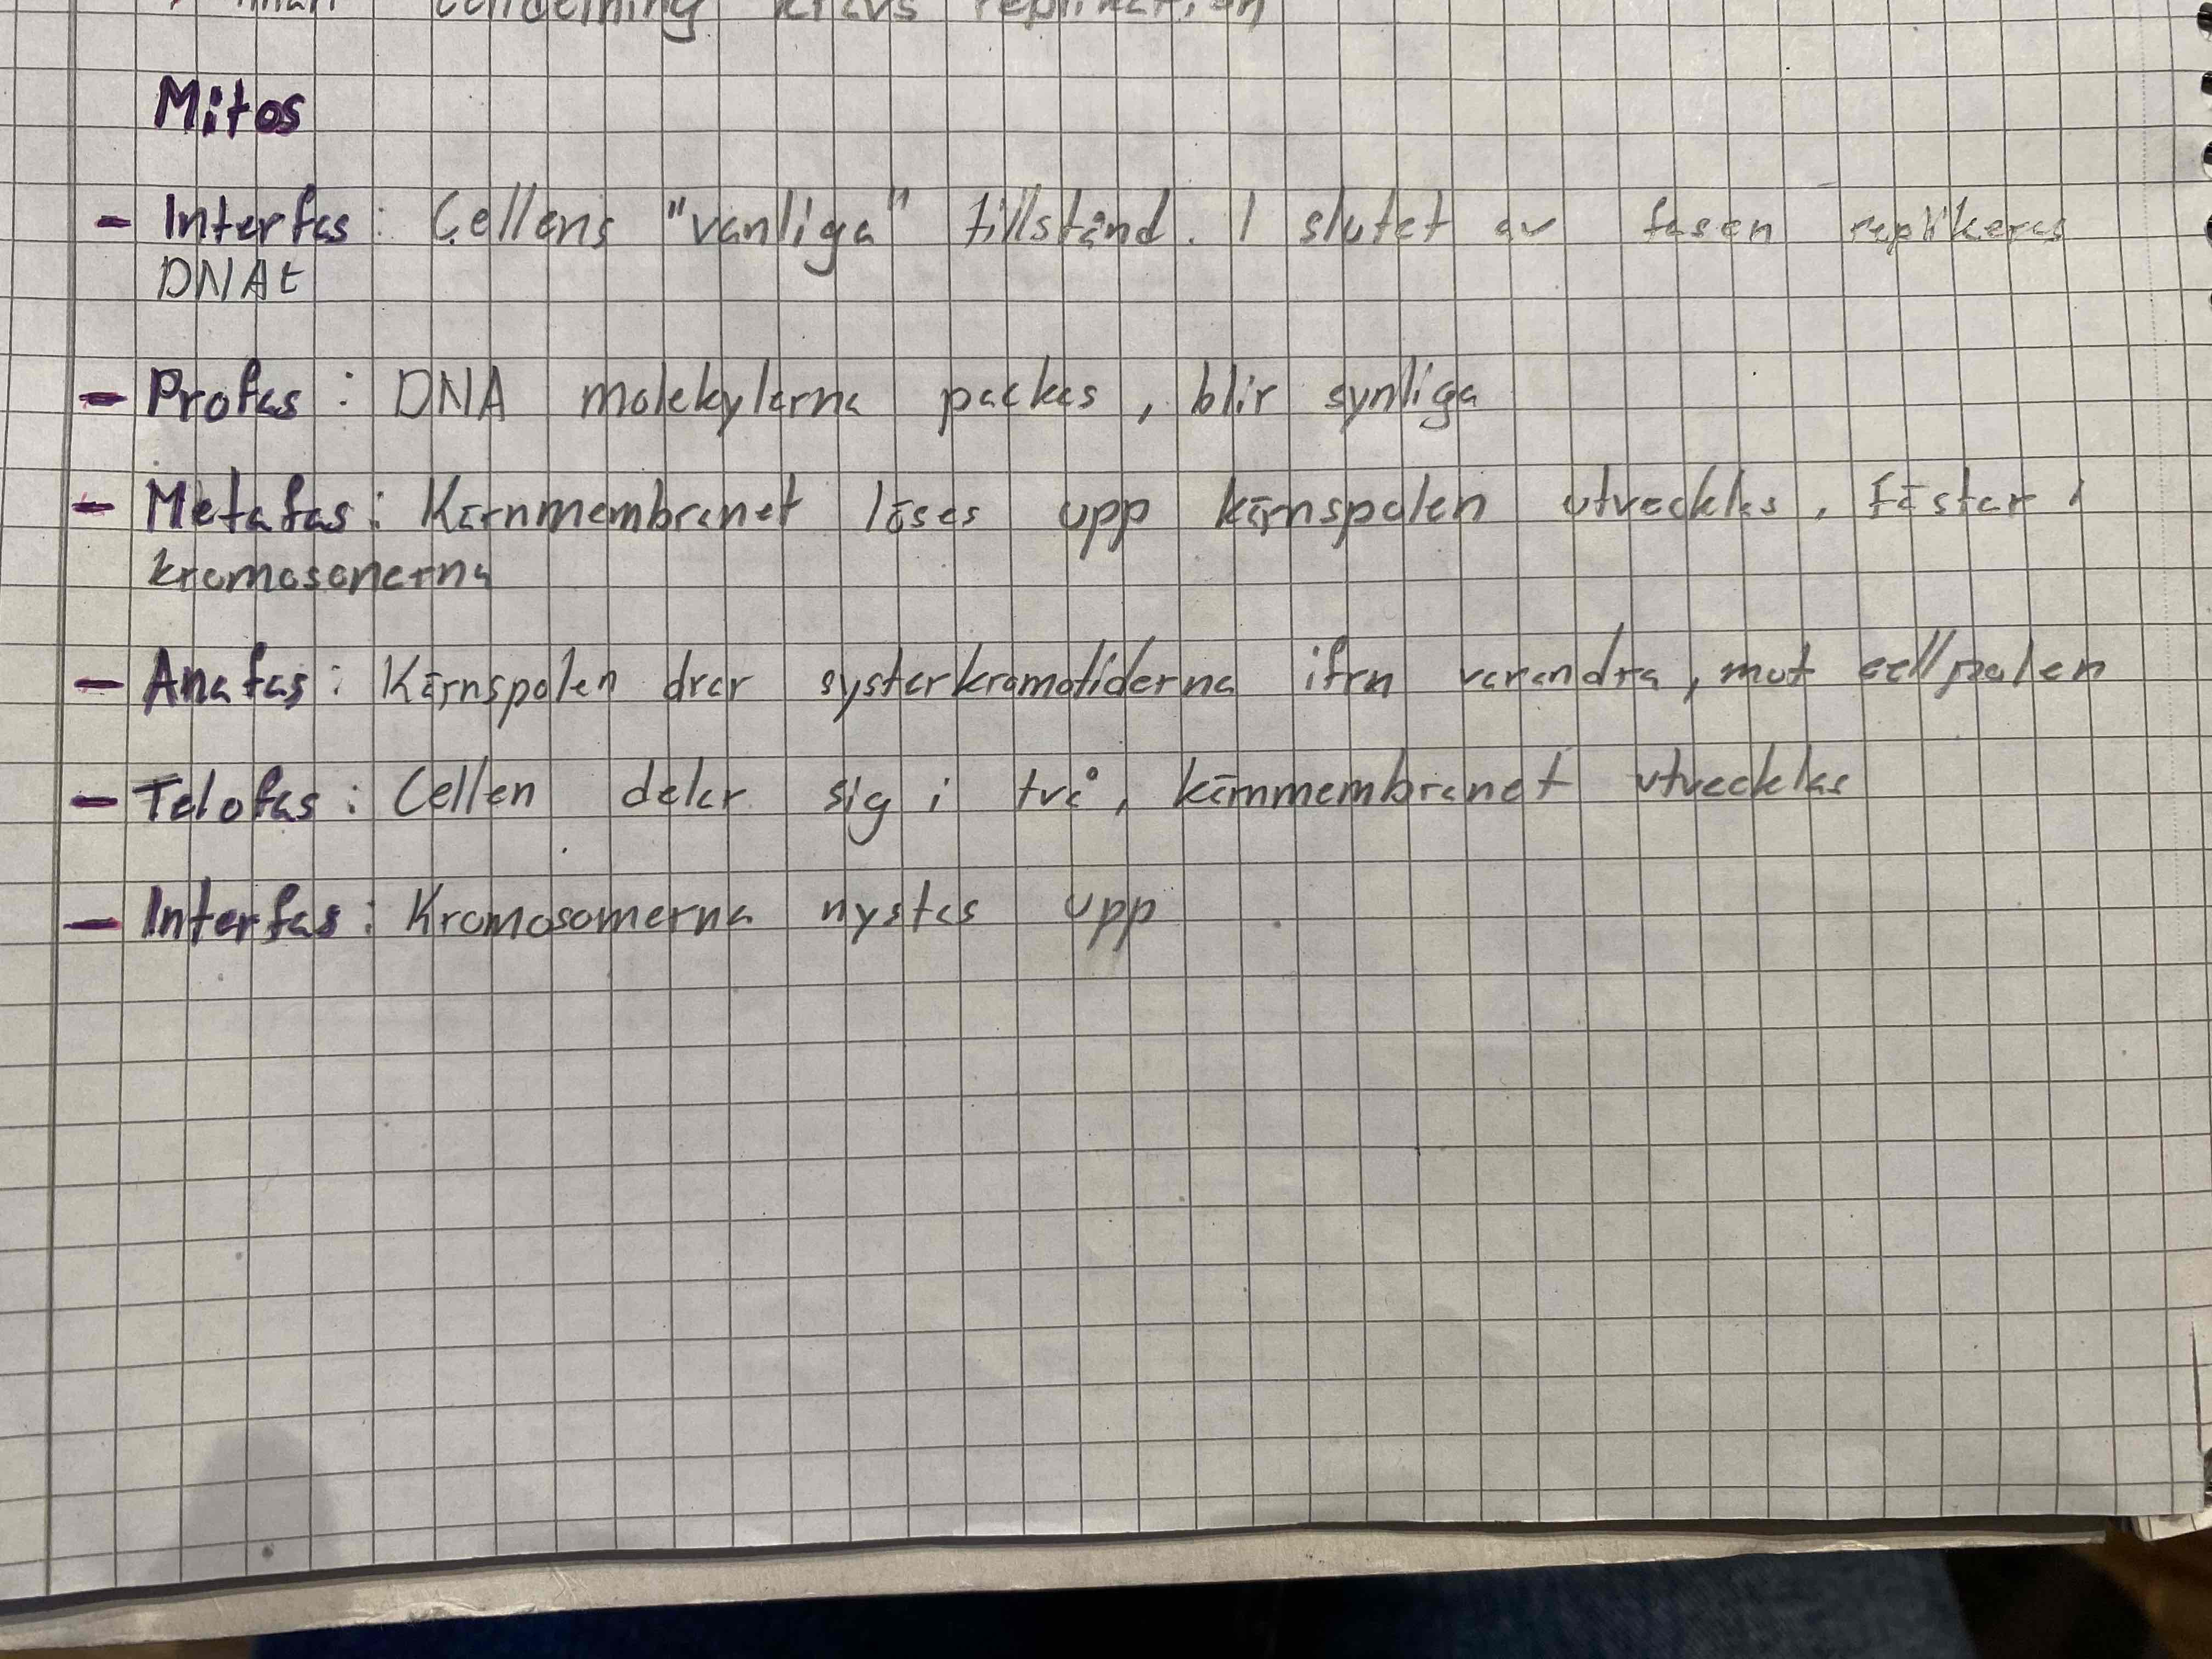 innan celldelning krävs replikation
Mitos
- Interfas: Cellens "vanliga" tillstånd. I slutet av fasen replikeras
DNAt
- Profas: DNA molekylerna packas, blir synliga
- Metafas: Kärnmembranet löses upp kärnspolen utvecklas, fäster i
kromosonerna
- Anafas: Kärnspolen drar systerkromatiderna ifrn varandra, mot cellpolen
- Telofas: Cellen delar sig i två, kärnmembranet utvecklas
- Interfas: Kromosomerna nystas upp